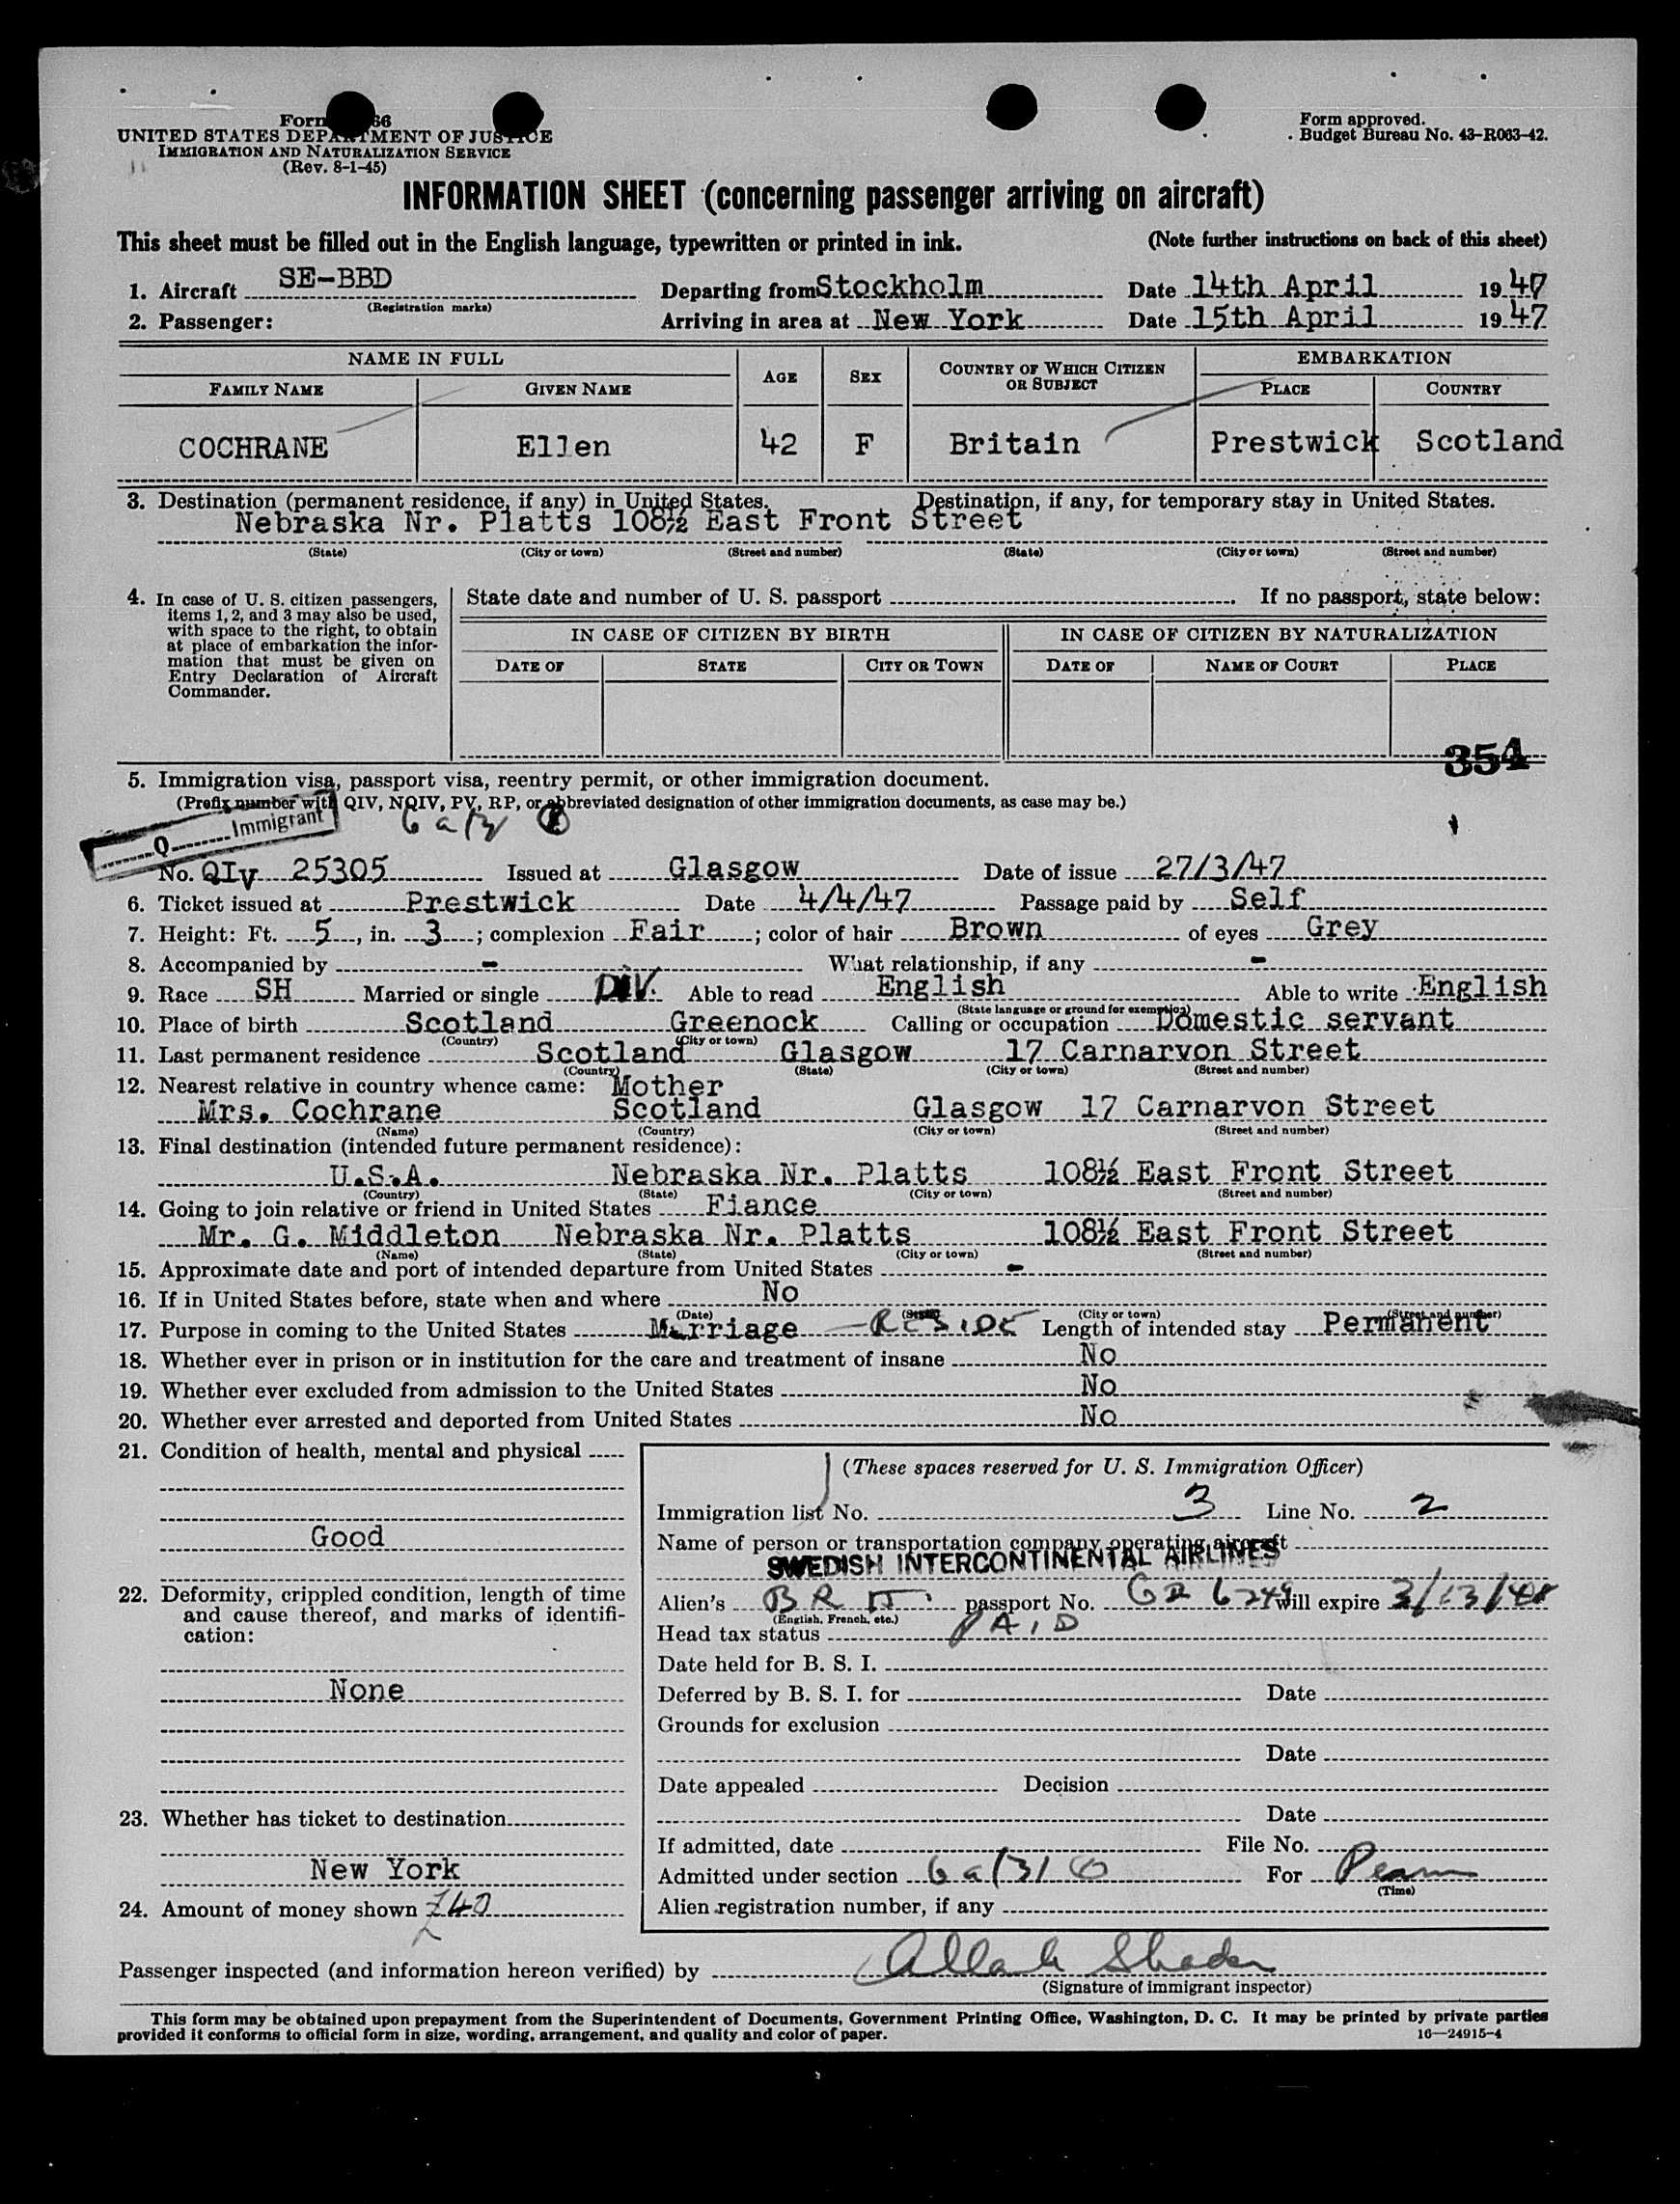 Form 66
UNITED STATES DEPARTMENT OF JUSTICE
IMMIGRATION AND NATURALIZATION SERVICE
(Rev. 8-1-45)
Form approved.
Budget Bureau No. 43-R063-42.
INFORMATION SHEET (concerning passenger arriving on aircraft)
This sheet must be filled out in the English language, typewritten or printed in ink. (Note further instructions on back of this sheet)
1. Aircraft SE-BBD Departing from Stockholm Date 14th April 1947
(Registration marks)
2. Passenger: Arriving in area at New York Date 15th April 1947
NAME IN FULL AGE SEX COUNTRY OF WHICH CITIZEN OR SUBJECT EMBARKATION
FAMILY NAME GIVEN NAME PLACE COUNTRY
COCHRANE Ellen 42 F Britain Prestwick Scotland
3. Destination (permanent residence, if any) in United States. Destination, if any, for temporary stay in United States.
Nebraska Nr. Platts 108½ East Front Street
(State) (City or town) (Street and number) (State) (City or town) (Street and number)
4. In case of U. S. citizen passengers, items 1, 2, and 3 may also be used, with space to the right, to obtain at place of embarkation the information that must be given on Entry Declaration of Aircraft Commander.
State date and number of U. S. passport If no passport, state below:
IN CASE OF CITIZEN BY BIRTH IN CASE OF CITIZEN BY NATURALIZATION
DATE OF STATE CITY OR TOWN DATE OF NAME OF COURT PLACE
354
5. Immigration visa, passport visa, reentry permit, or other immigration document.
(Prefix number with QIV, NQIV, PV, RP, or abbreviated designation of other immigration documents, as case may be.)
Q Immigrant
No. QIV 25305 Issued at Glasgow Date of issue 27/3/47
6. Ticket issued at Prestwick Date 4/4/47 Passage paid by Self
7. Height: Ft. 5, in. 3; complexion Fair; color of hair Brown of eyes Grey
8. Accompanied by - What relationship, if any -
9. Race SH Married or single DIV. Able to read English Able to write English
(State language or ground for exemption)
10. Place of birth Scotland Greenock Calling or occupation Domestic servant
(Country) (City or town)
11. Last permanent residence Scotland Glasgow 17 Carnarvon Street
(Country) (State) (City or town) (Street and number)
12. Nearest relative in country whence came: Mother
Mrs. Cochrane Scotland Glasgow 17 Carnarvon Street
(Name) (Country) (City or town) (Street and number)
13. Final destination (intended future permanent residence):
U.S.A. Nebraska Nr. Platts 108½ East Front Street
(Country) (State) (City or town) (Street and number)
14. Going to join relative or friend in United States Fiance
Mr. G. Middleton Nebraska Nr. Platts 108½ East Front Street
(Name) (State) (City or town) (Street and number)
15. Approximate date and port of intended departure from United States -
16. If in United States before, state when and where No
(Date) (State) (City or town) (Street and number)
17. Purpose in coming to the United States Marriage - RESIDE Length of intended stay Permanent
18. Whether ever in prison or in institution for the care and treatment of insane No
19. Whether ever excluded from admission to the United States No
20. Whether ever arrested and deported from United States No
21. Condition of health, mental and physical
Good
22. Deformity, crippled condition, length of time and cause thereof, and marks of identification:
None
23. Whether has ticket to destination
New York
24. Amount of money shown £40
(These spaces reserved for U. S. Immigration Officer)
Immigration list No. 3 Line No. 2
Name of person or transportation company operating aircraft
SWEDISH INTERCONTINENTAL AIRLINES
Alien's BRIT. passport No. will expire
(English, French, etc.)
Head tax status PAID
Date held for B. S. I.
Deferred by B. S. I. for Date
Grounds for exclusion
Date
Date appealed Decision
Date
If admitted, date File No.
Admitted under section 6a(3) For Perm
(Time)
Alien registration number, if any
Passenger inspected (and information hereon verified) by
(Signature of immigrant inspector)
This form may be obtained upon prepayment from the Superintendent of Documents, Government Printing Office, Washington, D. C. It may be printed by private parties
provided it conforms to official form in size, wording, arrangement, and quality and color of paper. 16—24915-4